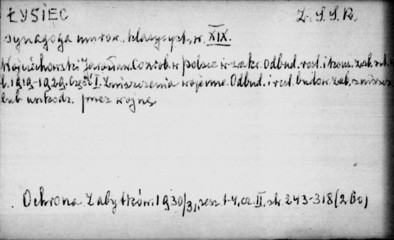 ŁYSIEC Z.S.S.R.
Synagoga murow. klasycyst. w. XIX.
Wojciechowski Jarosław. Co zrob. w Polsce w zakr. Odbud. rest. i kons. zab.
l. 1919-1929. Część I. Zniszczenia wojenne. Odbud. i rest. budow. zab. zniszcz.
lub uszkodz. przez wojnę
Ochrona Zabytków. 1930/31, zesz. 1-4, cz. II, str. 243-318 (260)